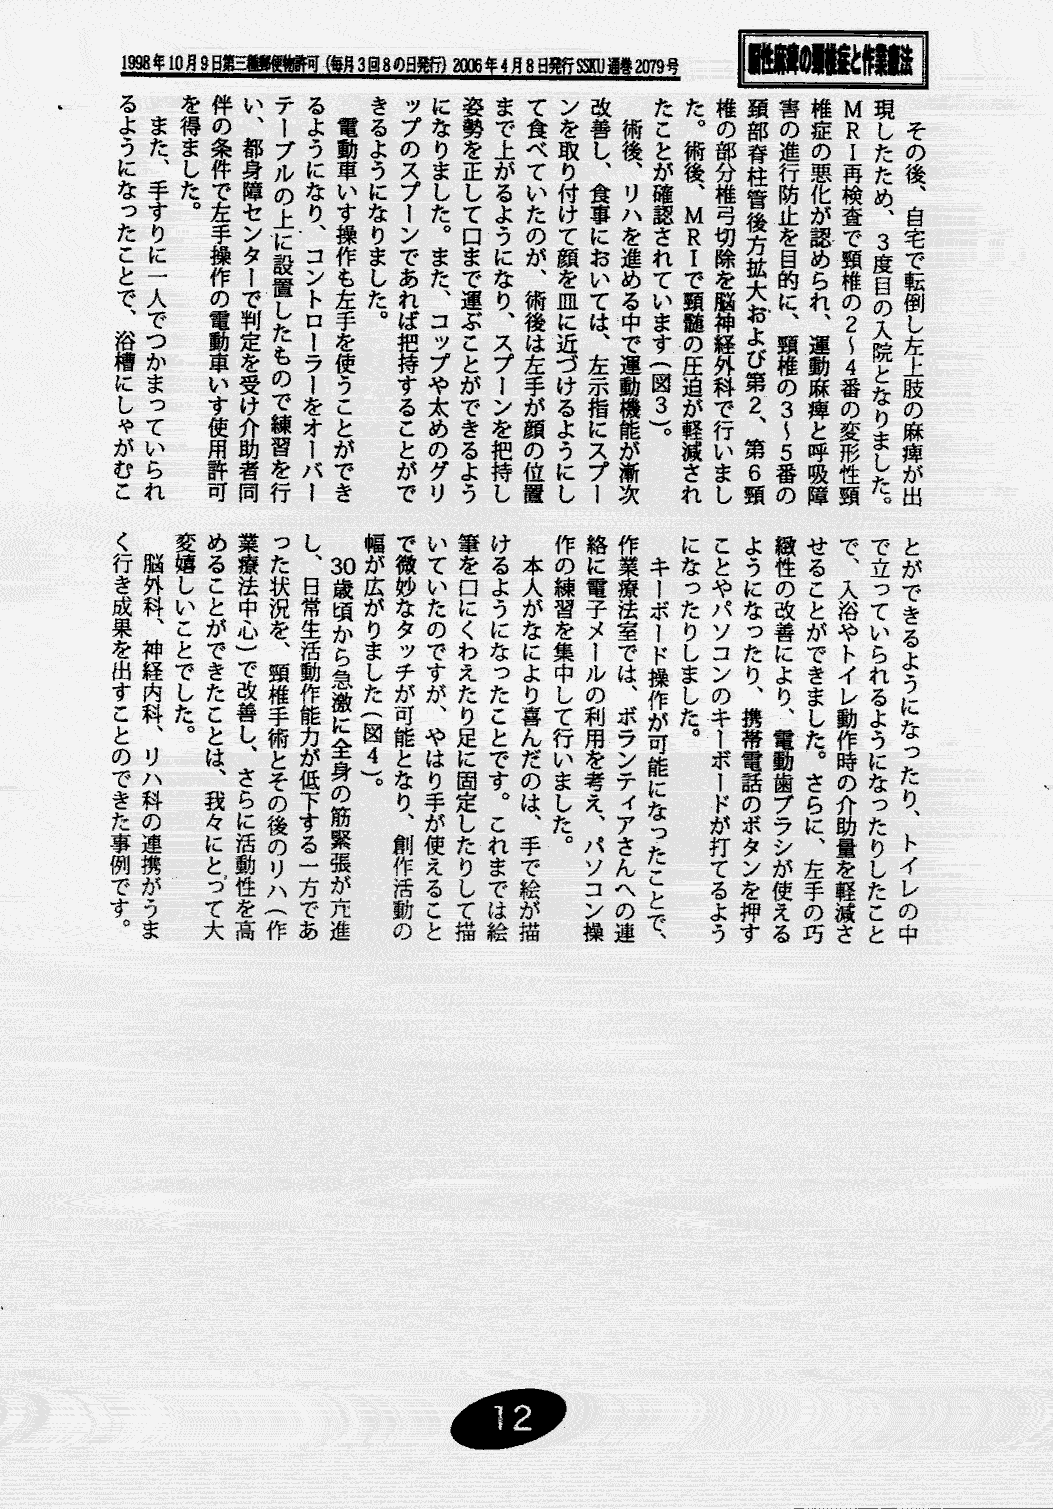 1998年10月9日第三種郵便物許可（毎月3回8の日発行）2006年4月8日発行SSKU通巻2079号
脳性麻痺の頸椎症と作業療法
その後、自宅で転倒し左上肢の麻痺が出
現したため、3度目の入院となりました。
MRI再検査で頸椎の2～4番の変形性頸
椎症の悪化が認められ、運動麻痺と呼吸障
害の進行防止を目的に、頸椎の3～5番の
頸部脊柱管後方拡大および第2、第6頸
椎の部分椎弓切除を脳神経外科で行いまし
た。術後、MRIで頸髄の圧迫が軽減され
たことが確認されています（図3）。
術後、リハを進める中で運動機能が漸次
改善し、食事においては、左示指にスプー
ンを取り付けて顔を皿に近づけるようにし
て食べていたのが、術後は左手が顔の位置
まで上がるようになり、スプーンを把持し
姿勢を正して口まで運ぶことができるよう
になりました。また、コップや太めのグリ
ップのスプーンであれば把持することがで
きるようになりました。
電動車いす操作も左手を使うことができ
るようになり、コントローラーをオーバー
テーブルの上に設置したもので練習を行
い、都身障センターで判定を受け介助者同
伴の条件で左手操作の電動車いす使用許可
を得ました。
また、手すりに一人でつかまっていられ
るようになったことで、浴槽にしゃがむこ
とができるようになったり、トイレの中
で立っていられるようになったりしたこと
で、入浴やトイレ動作時の介助量を軽減さ
せることができました。さらに、左手の巧
緻性の改善により、電動歯ブラシが使える
ようになったり、携帯電話のボタンを押す
ことやパソコンのキーボードが打てるよう
になったりしました。
キーボード操作が可能になったことで、
作業療法室では、ボランティアさんへの連
絡に電子メールの利用を考え、パソコン操
作の練習を集中して行いました。
本人がなにより喜んだのは、手で絵が描
けるようになったことです。これまでは絵
筆を口にくわえたり足に固定したりして描
いていたのですが、やはり手が使えること
で微妙なタッチが可能となり、創作活動の
幅が広がりました（図4）。
30歳頃から急激に全身の筋緊張が亢進
し、日常生活動作能力が低下する一方であ
った状況を、頸椎手術とその後のリハ（作
業療法中心）で改善し、さらに活動性を高
めることができたことは、我々にとって大
変嬉しいことでした。
脳外科、神経内科、リハ科の連携がうま
く行き成果を出すことのできた事例です。
12